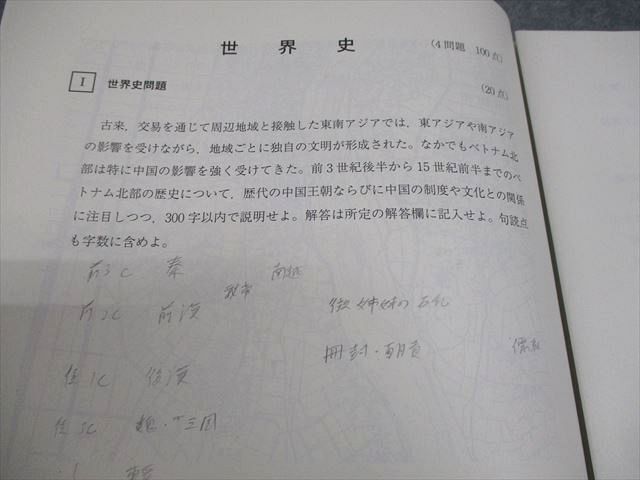 世界史
(4問題 100点)
I 世界史問題
(20点)
古来,交易を通じて周辺地域と接触した東南アジアでは,東アジアや南アジア
の影響を受けながら,地域ごとに独自の文明が形成された。なかでもベトナム北
部は特に中国の影響を強く受けてきた。前3世紀後半から15世紀前半までのベ
トナム北部の歴史について,歴代の中国王朝ならびに中国の制度や文化との関係
に注目しつつ,300字以内で説明せよ。解答は所定の解答欄に記入せよ。句読点
も字数に含めよ。
前3C 秦 南越
武帝
前2C 前漢 徴姉妹の反乱
冊封・朝貢
後漢
三国